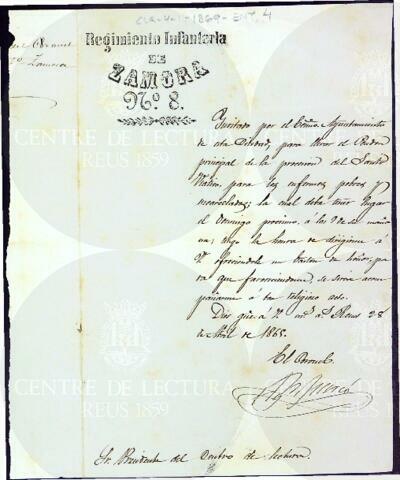 CLA-4-1-1869-ENT, 4
Regimiento Infanteria
DE
ZAMORA
Nº 8.
Zamora
Invitado por el Excmo Ayuntamiento
de esta Ciudad, para llevar el Pendon
principal de la procesion del Santo
Viatico, para los enfermos pobres y
la cual debe tener lugar
el Domingo proximo, á las 9 de su maña
na; tengo la honra de dirigirme á
V. ofreciendole un baston de honor pa
ra que favoreciendome, se sirva acom
pañarme á tan religioso acto.
Dios gue á V. ms. as. Reus 28
de Abril de 1865.
El Coronel
Sr. Presidente del Centro de lectura.
CENTRE DE LECTURA
REUS 1859
CENTRE DE LECTURA
REUS 1859